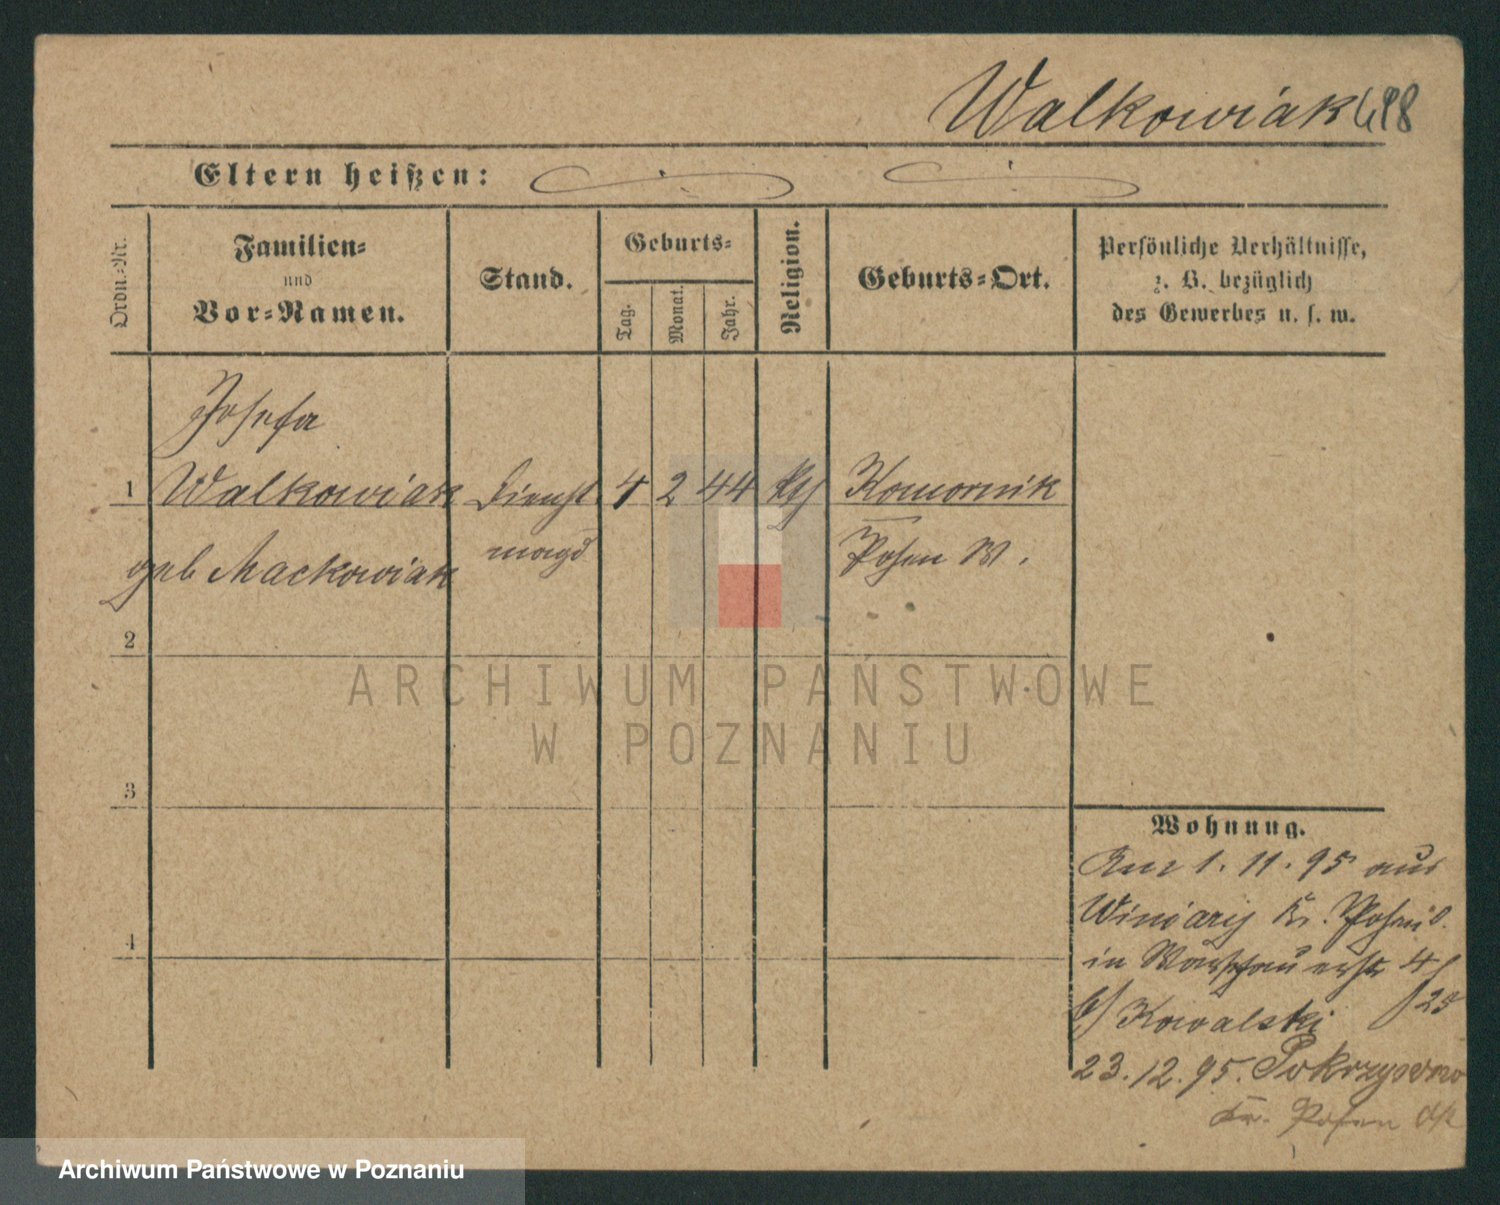 Walkowiak 498
Eltern heißen:
Ordn.-Nr.
Familien-
und
Vor-Namen.
Stand.
Geburts-
Tag.
Monat.
Jahr.
Religion.
Geburts-Ort.
Persönliche Verhältnisse,
z. B. bezüglich
des Gewerbes u. s. w.
Josefa
1 Walkowiak Dienst 4 2 44 kth Komornik
geb Mackowiak magd Posen W.
2
3
4
Wohnung.
1. 11. 95 aus
Winiary Kr. Posen O.
in 4
b/ Kowalski 25
23. 12. 95. Pokrzywno
Kr. Posen
ARCHIWUM PAŃSTWOWE
W POZNANIU
Archiwum Państwowe w Poznaniu